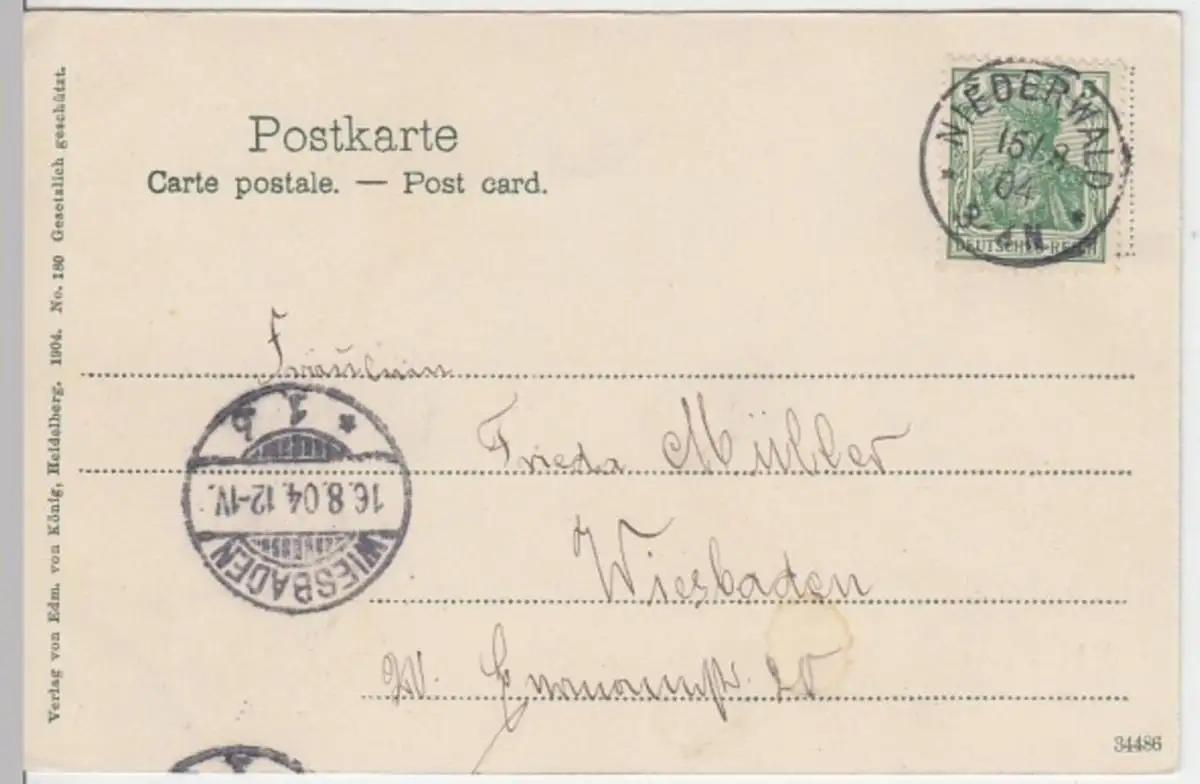 Postkarte
Carte postale. — Post card.
NIEDERWALD
15/8
04
3-4 N
5
DEUTSCHES REICH
Fräulein
Frieda Müller
Wiesbaden
20
WIESBADEN
16.8.04.12-1V.
* 1 b
Verlag von Edm. von König, Heidelberg. 1904. No. 180 Gesetzlich geschützt.
34486